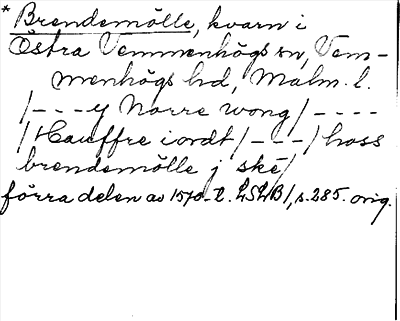 * Brendemölle, kvarn i
Östra Vemmenhögs sn, Vem-
menhögs hd, Malm. l.
/---y Norre wong/----
/Hauffre iordt/---/hoss
brendemölle j ské/
förra delen av 1570-t. LSLB1, s. 285. orig.